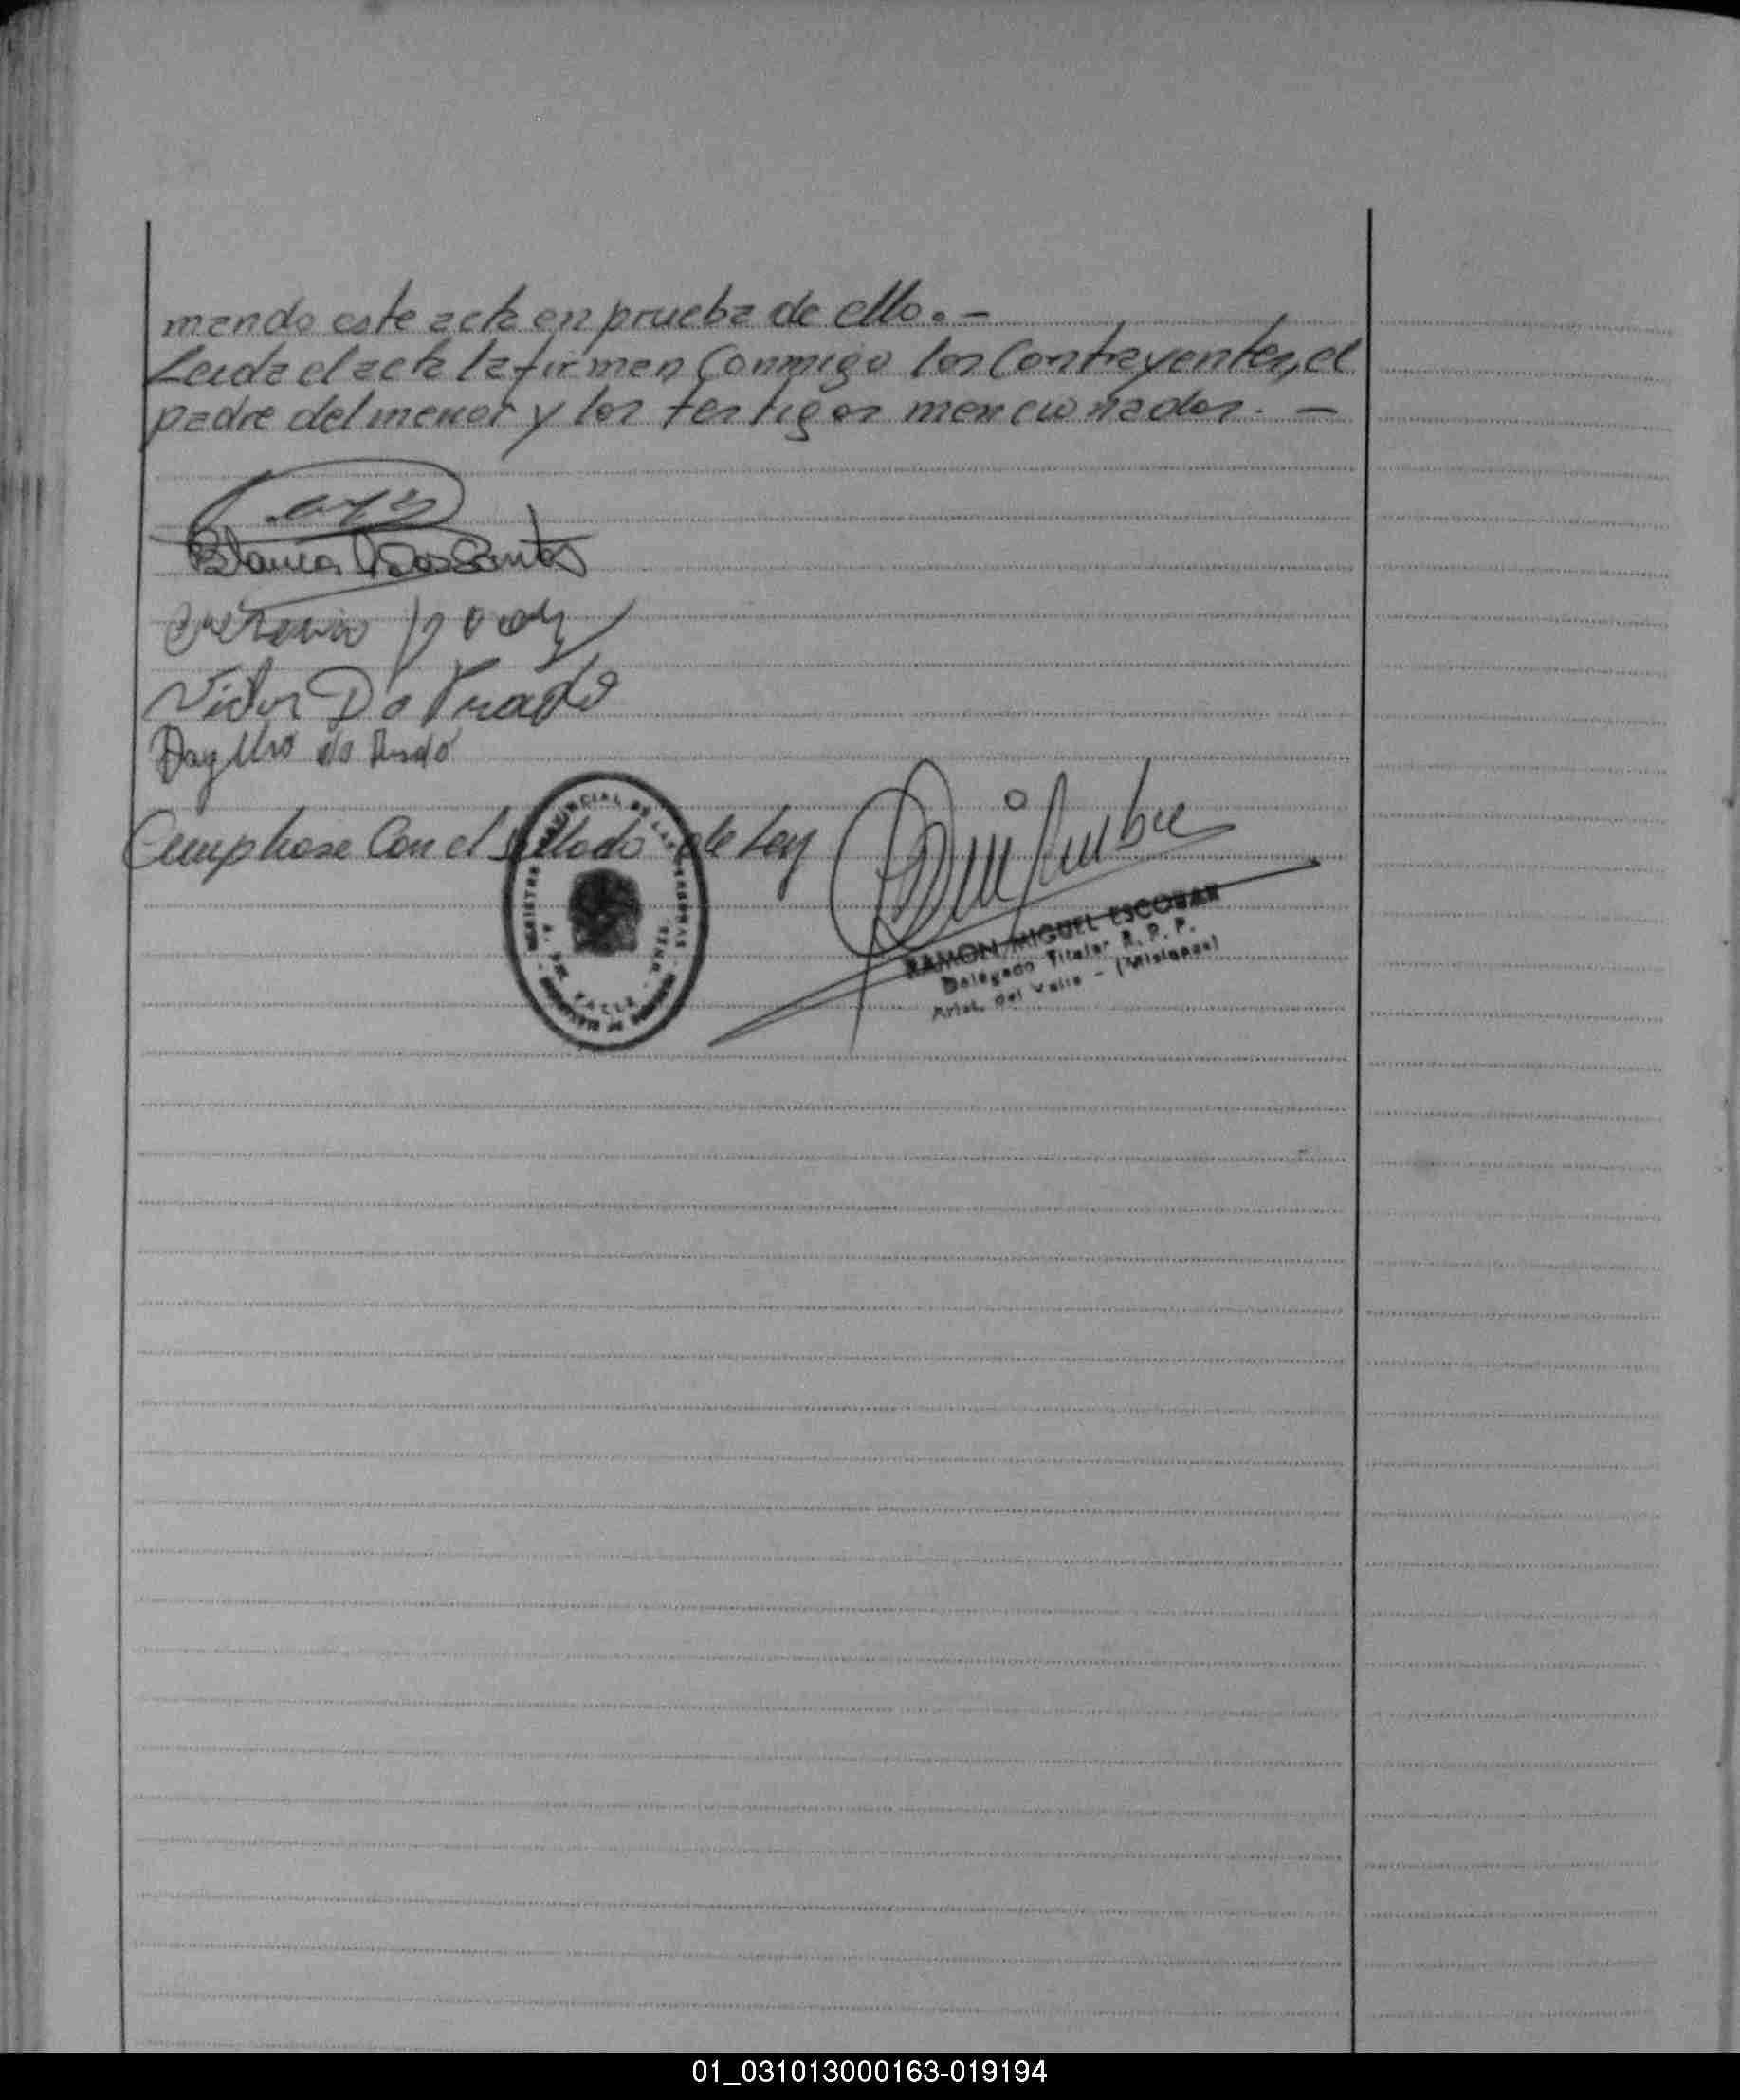 mando este acta en prueba de ello. -
Leida el acta la firman Conmigo los Contrayentes, el
padre del menor y los testigos mencionados. -
Blanca Dos Santos
Victor Do Prado
do Prado
Cumpliose Con el Sellado de Ley
REGISTRO PROVINCIAL DE LAS PERSONAS
RAMON MIGUEL ESCOBAR
Delegado Titular R. P. P.
Arist. del Valle - (Misiones)
01_031013000163-019194